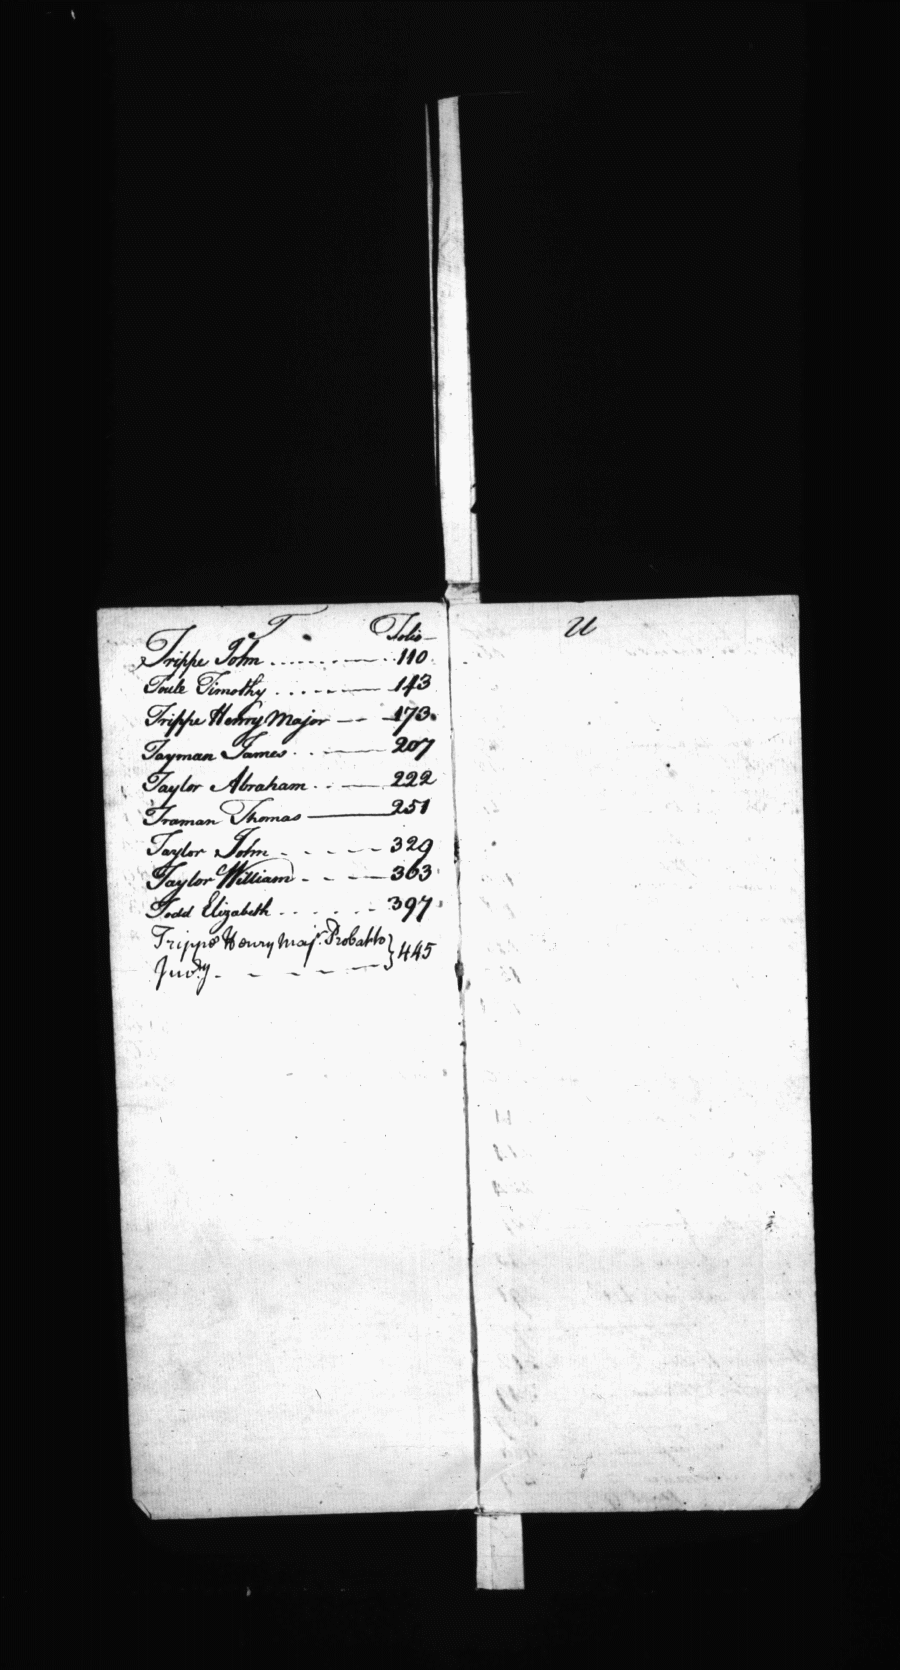 T Folio
Trippe John ........ 110
Toule Timothy ........ 143
Trippe Henry Major -- 173
Tayman James .. 207
Taylor Abraham .. 222
Traman Thomas 251
Taylor John - - - - 329
Taylor William - - - 363
Todd Elizabeth . . . . - - 397
Trippe Henry Majr. Probat to } 445
- - - -
U